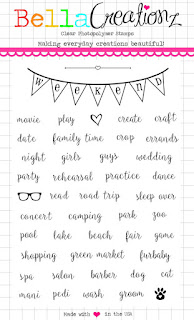 BellaCreationz
Clear Photopolymer Stamps
Making everyday creations beautiful!
WEEKEND
movie play create craft
date family time crop errands
night girls guys wedding
party rehearsal practice dance
read road trip sleep over
concert camping park zoo
pool lake beach fair game
shopping green market furbaby
spa salon barber dog cat
mani pedi wash groom
Made with in the USA